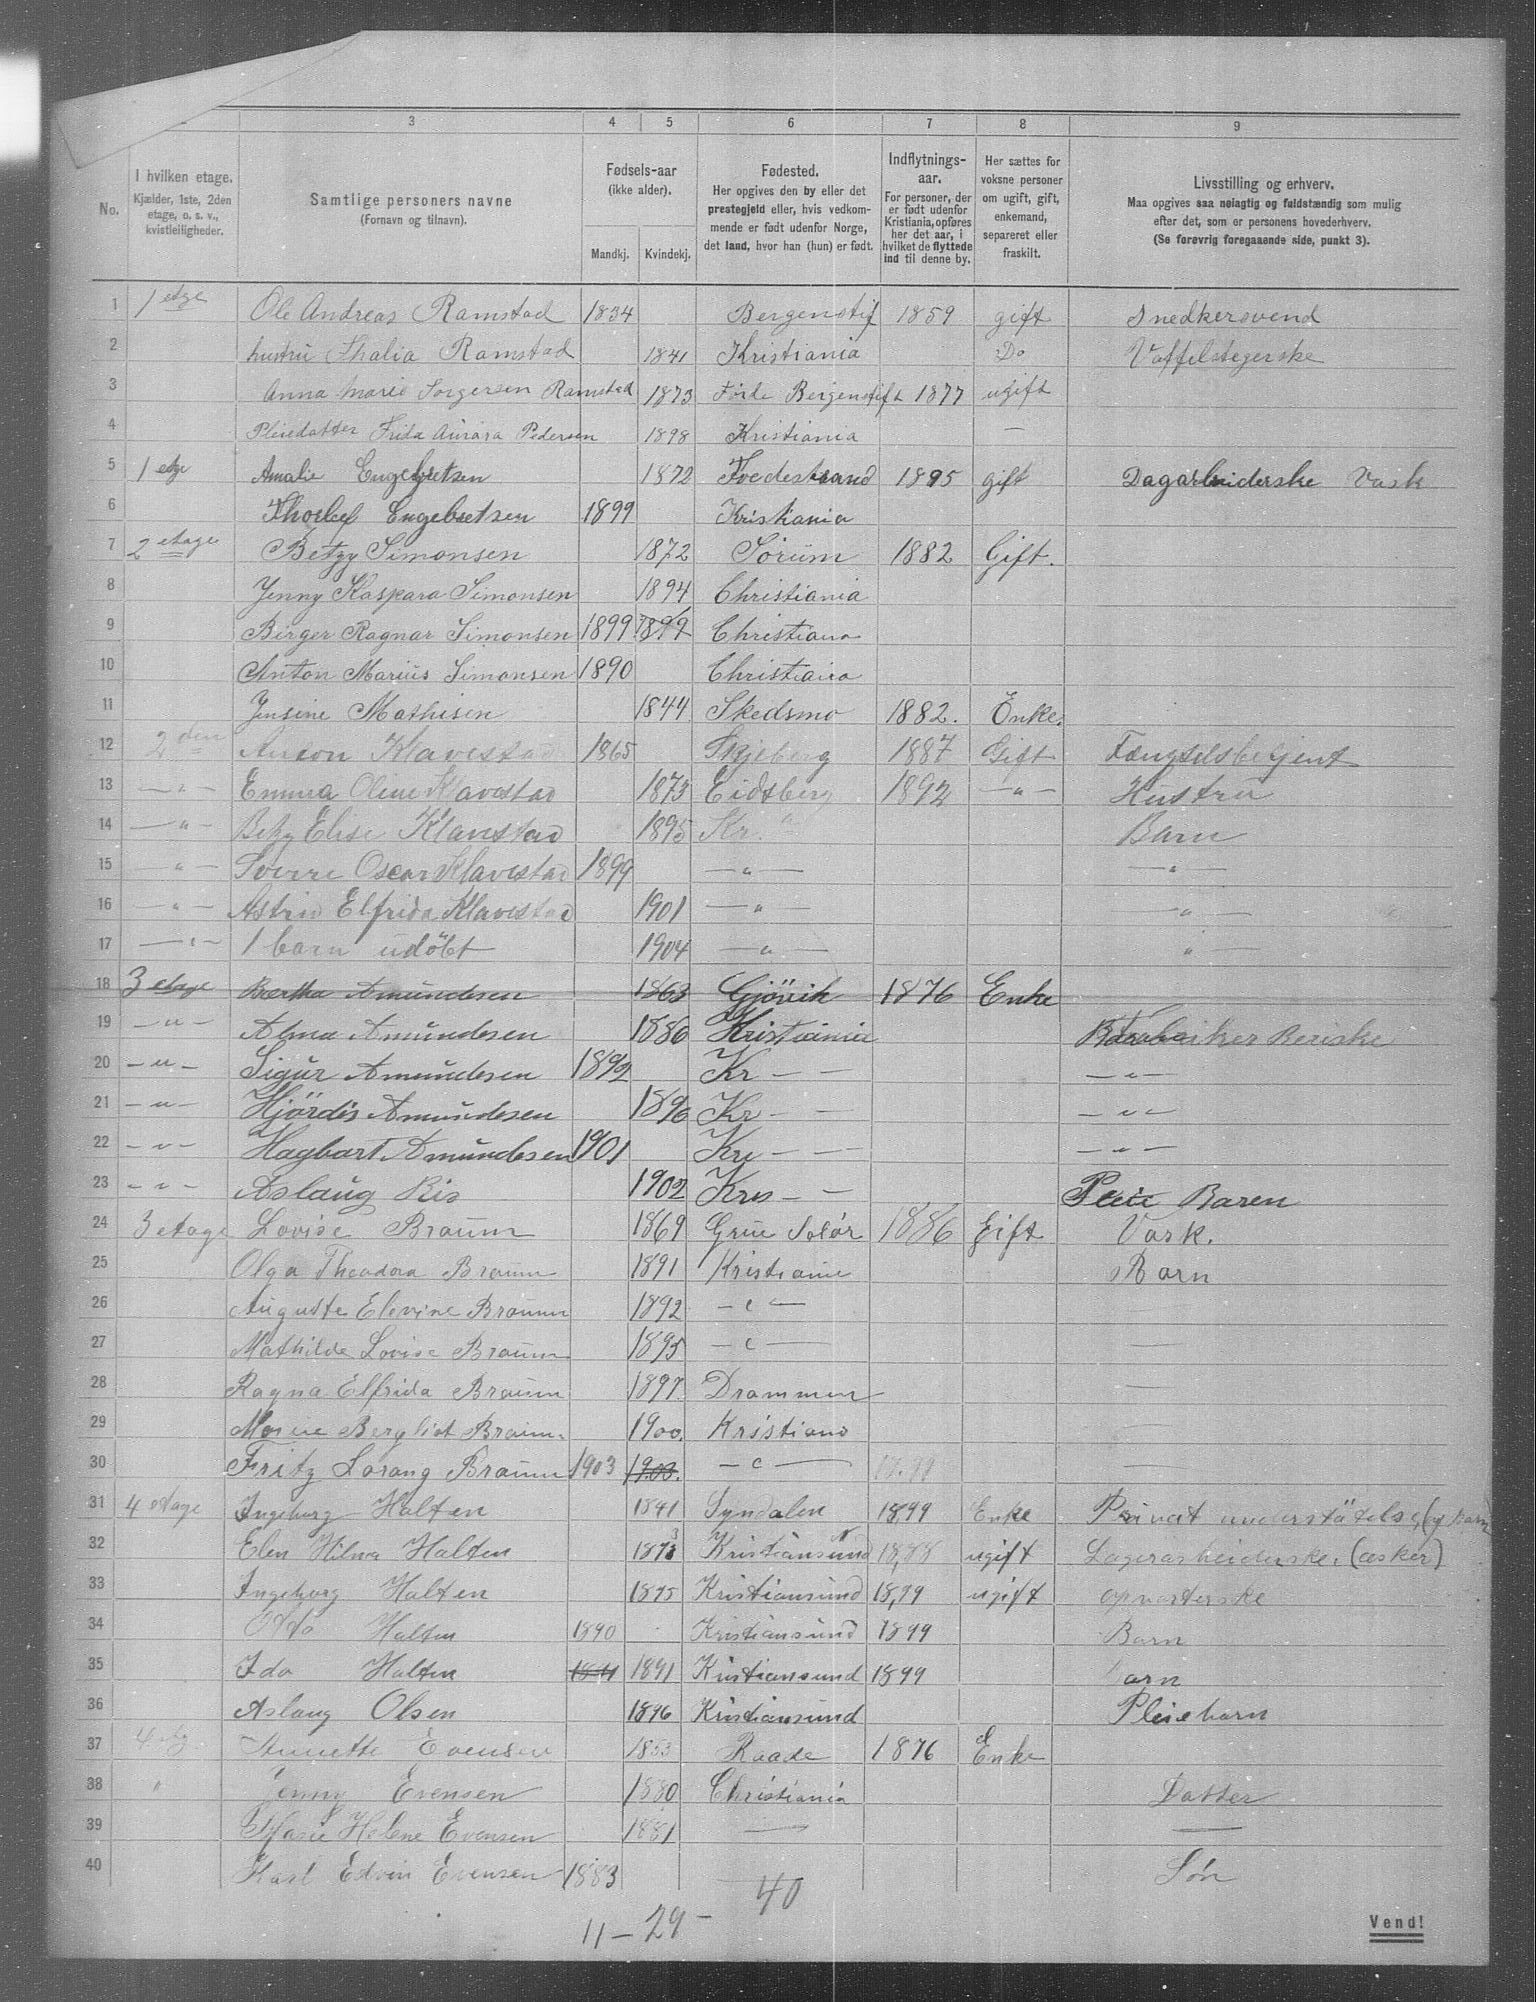 3 4 5 6 7 8 9
No.
I hvilken etage. Kjælder, 1ste, 2den etage, o. s. v., kvistleiligheder.
Samtlige personers navne (Fornavn og tilnavn).
Fødsels-aar (ikke alder). Mandkj. Kvindekj.
Fødested. Her opgives den by eller det prestegjeld eller, hvis vedkommende er født udenfor Norge, det land, hvor han (hun) er født.
Indflytnings-aar. For personer, der er født udenfor Kristiania, opføres her det aar, i hvilket de flyttede ind til denne by.
Her sættes for voksne personer om ugift, gift, enkemand, separeret eller fraskilt.
Livsstilling og erhverv. Maa opgives saa nøiagtig og fuldstændig som mulig efter det, som er personens hovederhverv. (Se forøvrig foregaaende side, punkt 3).
1 1 etge Ole Andreas Ramstad 1834 Bergenstif 1859 gift Snedkersvend
2 hustru Thalia Ramstad 1841 Kristiania Do Vaffelstegerske
3 Anna Marie Torgersen Ramstad 1873 Førde Bergenstift 1877 ugift
4 Pleiedatter Frida Aurora Pedersen 1898 Kristiania —
5 1 etge Amalie Engebretsen 1872 Tvedestrand 1895 gift Dagarbeiderske Vask
6 Thorleif Engebretsen 1899 Kristiania
7 2 etage Betzy Simonsen 1872 Sørum 1882 Gift.
8 Jenny Kaspara Simonsen 1894 Christiania
9 Birger Ragnar Simonsen 1899 1899 Christiana
10 Anton Marius Simonsen 1890 Christiana
11 Jensine Mathisen 1844 Skedsmo 1882. Enke.
12 2 den Anton Klavestad 1865 Skjeberg 1887 Gift Fængselsbetjent
13 — " — Emma Oline Klavestad 1873 Eidsberg 1892 — " — Hustru
14 — " — Betzy Elise Klavestad 1895 Kr. " Barn
15 — " — Sverre Oscar Klavestad 1899 — " — — " —
16 — " — Astrid Elfrida Klavestad 1901 — " — — " —
17 — " — 1 barn udöbt 1904 — " — "
18 3 etage Bertha Amundesen 1863 Gjövik 1876 Enke
19 — " — Alma Amundesen 1886 Kristiania
20 — " — Sigur Amundesen 1892 Kr — — — " —
21 — " — Hjördis Amundesen 1896 Kr — — — " —
22 — " — Hagbart Amundesen 1901 Kre — — — " —
23 — " — Aslaug Ris 1902 Kres — — Pleie Baren
24 3 etage Lovise Braum 1869 Grue Solør 1886 Gift Vask.
25 Olga Theodora Braum 1891 Kristiania Barn
26 Auguste Elevine Braum 1892 — " —
27 Mathilde Lovise Braum 1895 — " — —
28 Ragna Elfrida Braum 1897. Drammen —
29 Marie Bergliot Braum. 1900. Kristiana —
30 Fritz Lorang Braum 1903 1903. — " — —
31 4 etage Ingeborg Halten 1841 Syndalen 18,99 Enke Privat understöttels
32 Elen Hilma Halten 1873 3 Kristiansund N 18,88 ugift Lagerarbeiderske. (æsker)
33 Ingeborg Halten 1875 Kristiansund 18,99 ugift opvarterske
34 Halten 1890 Kristiansund 1899 Barn
35 Ida Halten 1891 1891 Kristiansund 1899 arn
36 Aslaug Olsen 1896 Kristiansund Pleiebarn
37 4 etg Annette Evensen 1853 Raade 1876 Enke
38 " Jenny Evensen 1880 Christiania Datter
39 Marie Helene Evensen 1881 — —
40 Karl Edvin Evensen 1883 Søn
40
11 – 29 –
Vend!